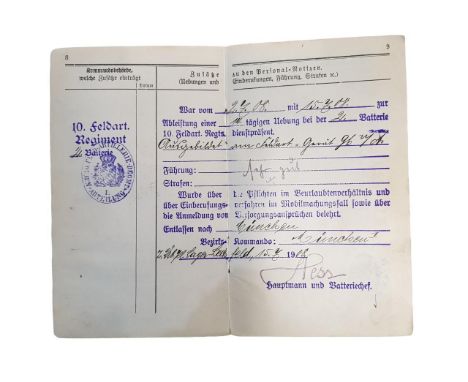 8
9
Kommandobehörde,
welche Zusätze einträgt
Datum
Zusätze
zu den Personal-Notizen.
(Uebungen und Einberufungen, Führung, Strafen ꝛc.)
War vom 2.7.08. mit 15.7.08. zur
Ableistung einer 14 tägigen Uebung bei der 2. Batterie
10. Feldart. Regts. dienstpräsent.
10. Feldart.
Regiment
2. Batterie
Ausgebildet am Feldart. Gerät
Führung: gut
Strafen:
Wurde über die Pflichten im Beurlaubtenverhältnis und
über Einberufungs- verfahren im Mobilmachungsfall sowie über
die Anmeldung von Versorgungsansprüchen belehrt.
Entlassen nach München
Bezirks- Kommando: München
Lager Lechfeld, 15.7. 1908
Hess
Hauptmann und Batteriechef.